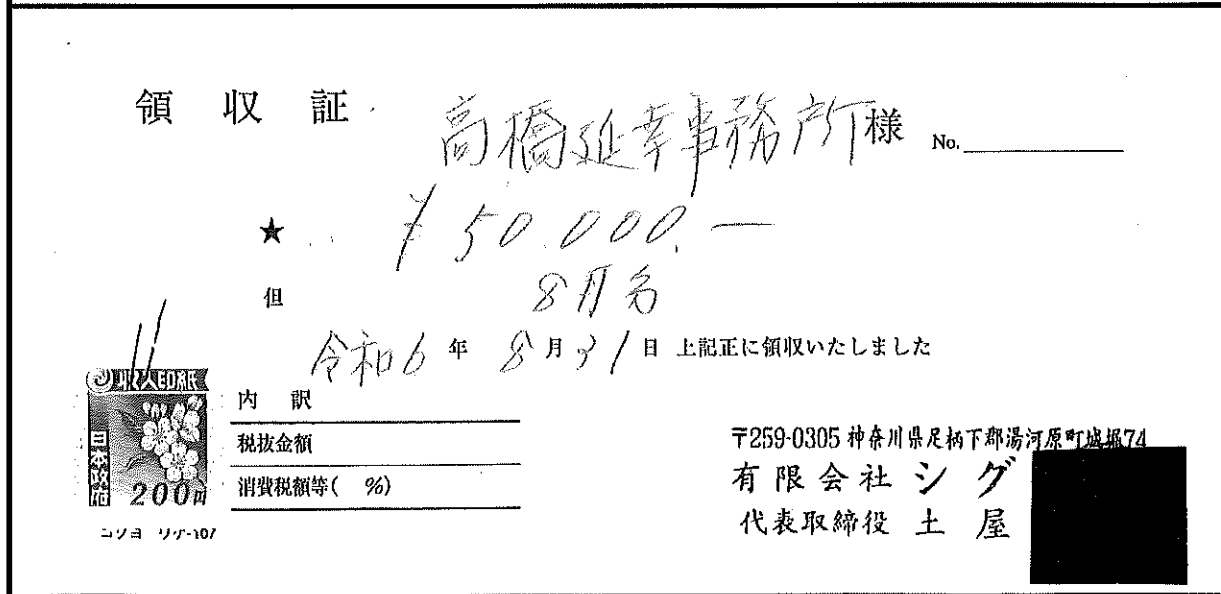 領収証 高橋延幸事務所様 No.
★ ¥50,000.—
但 8月分
令和6年8月31日 上記正に領収いたしました
収入印紙
日本政府
200円
コクヨ ウケ-107
内訳
税抜金額
消費税額等( %)
〒259-0305 神奈川県足柄下郡湯河原町城堀74
有限会社 シグ
代表取締役 土屋